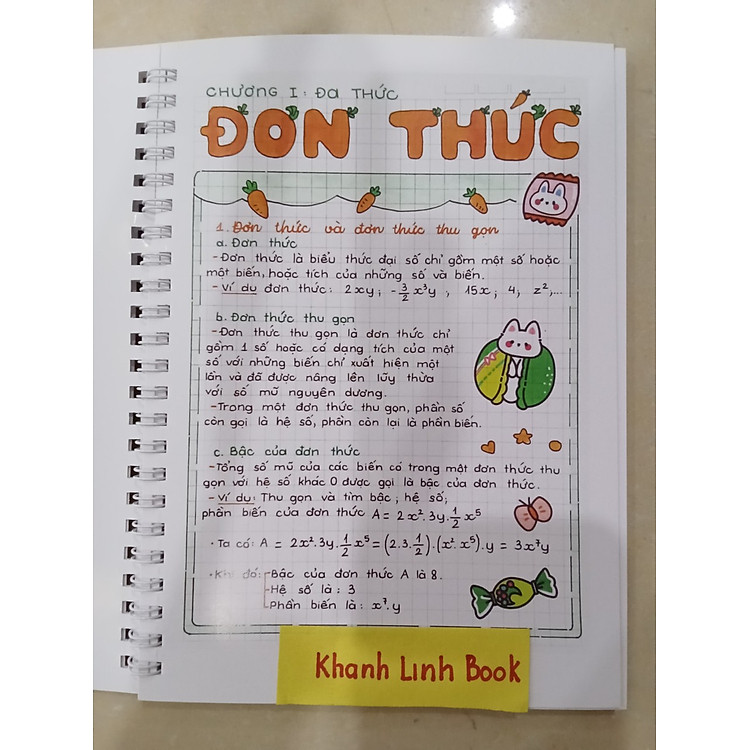 CHƯƠNG I: ĐA THỨC
ĐƠN THỨC
1. Đơn thức và đơn thức thu gọn
a. Đơn thức
-Đơn thức là biểu thức đại số chỉ gồm một số hoặc
một biến, hoặc tích của những số và biến.
- Ví dụ đơn thức: 2xy; -3/2 x³y, 15x; 4; z²,...
b. Đơn thức thu gọn
-Đơn thức thu gọn là đơn thức chỉ
gồm 1 số hoặc có dạng tích của một
số với những biến chỉ xuất hiện một
lần và đã được nâng lên lũy thừa
với số mũ nguyên dương.
-Trong một đơn thức thu gọn, phần số
còn gọi là hệ số, phần còn lại là phần biến.
c. Bậc của đơn thức
-Tổng số mũ của các biến có trong một đơn thức thu
gọn với hệ số khác 0 được gọi là bậc của đơn thức.
- Ví dụ: Thu gọn và tìm bậc, hệ số,
phần biến của đơn thức A = 2x².3y.1/2 x⁵
• Ta có: A = 2x².3y.1/2 x⁵ = (2.3.1/2).(x².x⁵).y = 3x⁷y
• Khi đó: -Bậc của đơn thức A là 8.
-Hệ số là: 3
-Phần biến là: x⁷.y
Khanh Linh Book